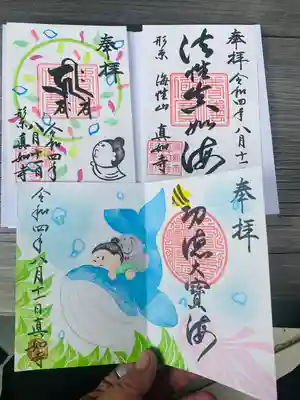 奉拝
令和四年
八月十一日
形原 真如寺
奉拝 令和四年八月十一
法性真如海
形原 海性山 真如寺
奉拝
功徳大寶海
令和四年八月十一日真如寺